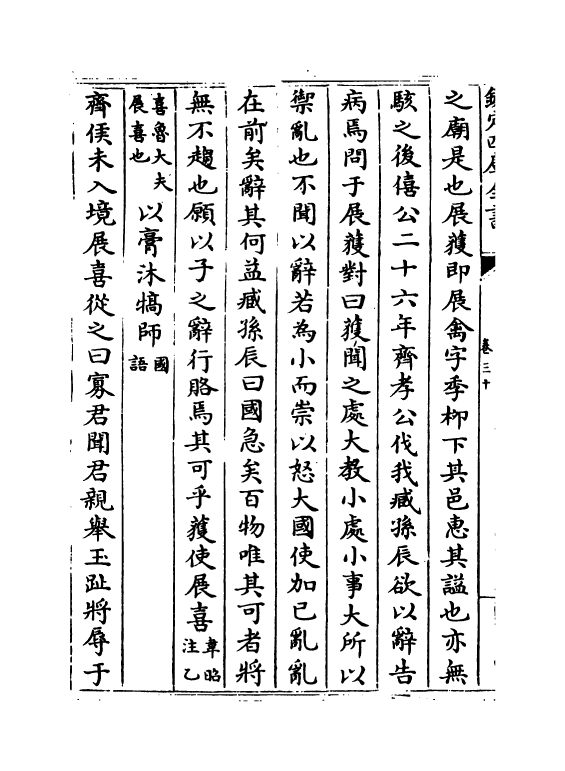 欽定四庫全書
卷三十
之廟是也展䕶即展禽字季栁下其邑惠其諡也亦無
駭之後僖公二十六年齊孝公伐我臧孫辰欲以辭告
病焉問于展䕶對曰䕶聞之處大教小處小事大所以
禦亂也不聞以辭若為小而崇以怒大國使加己亂亂
在前矣辭其何益臧孫辰曰國急矣百物唯其可者將
無不趨也願以子之辭行賂焉其可乎䕶使展喜韋昭注乙
喜魯大夫展喜也以膏沐犒師國語
齊侯未入境展喜從之曰寡君聞君親舉玉趾將辱于